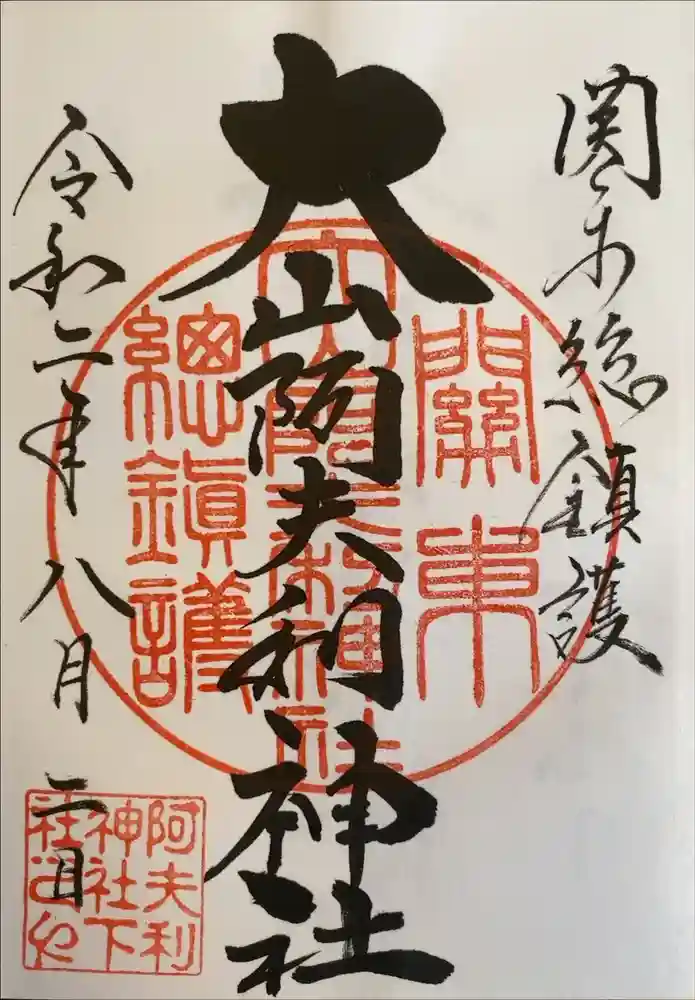 関东総鎮護
大山阿夫利神社
令和二年八月一日
關東
大山阿夫利神社
總鎮護
阿夫利
神社下
社